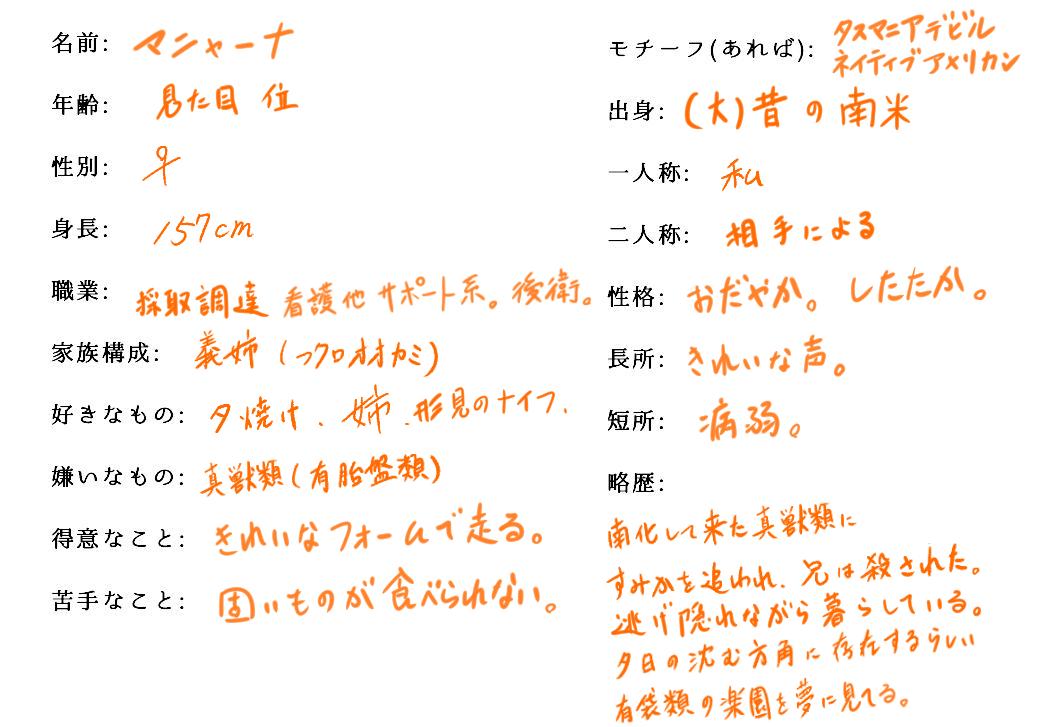 名前: マニャーナ
年齢: 見た目 位
性別: ♀
身長: 157cm
職業: 採取調達 看護他 サポート系。後衛。
家族構成: 義姉 (フクロオオカミ)
好きなもの: 夕焼け、姉、形見のナイフ、
嫌いなもの: 真獣類(有胎盤類)
得意なこと: きれいなフォームで走る。
苦手なこと: 固いものが食べられない。
モチーフ(あれば): タスマニアデビル
ネイティブアメリカン
出身: (大)昔の南米
一人称: 私
二人称: 相手による
性格: おだやか。 したたか。
長所: きれいな声。
短所: 病弱。
略歴:
南化して来た真獣類に
すみかを追われ、兄は殺された。
逃げ隠れながら暮らしている。
夕日の沈む方角に存在するらしい
有袋類の楽園を夢に見てる。